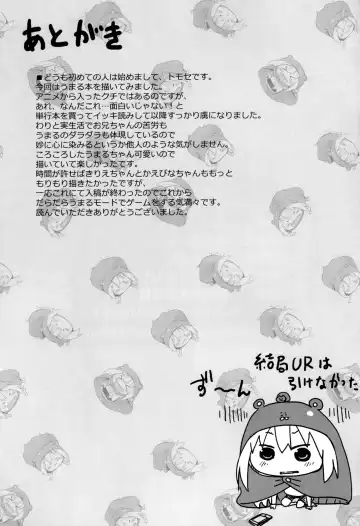 あとがき
■どうも初めての人は始めまして、トモセです。
今回はうまる本を描いてみました。
アニメから入ったクチではあるのですが、
あれ、なんだこれ…面白いじゃない!と
単行本を買ってイッキ読みして以降すっかり虜になりました。
わりと実生活でお兄ちゃんの苦労も
うまるのダラダラも体現しているので
妙に心に染みるというか他人のような気がしません。
ころころしたうまるちゃん可愛いので
描いていて楽しかったです。
時間が許せばきりえちゃんとかえびなちゃんももっと
もりもり描きたかったですが、
一応これにて入稿が終わったのでこれから
だらだらうまるモードでゲームをする気満々です。
読んでいただきありがとうございました。
結局URは
引けなかった
ず〜ん